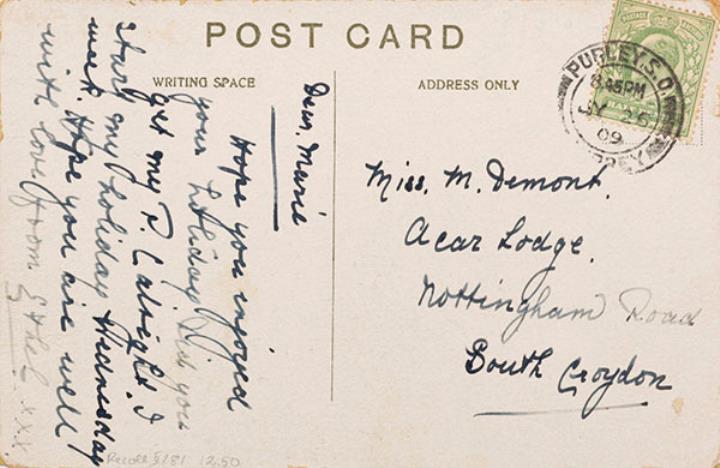 POST CARD
WRITING SPACE
ADDRESS ONLY
Dear, Marie
Hope you enjoyed
your holiday Did you
get my P. C alright. I
start my holiday Wednesday
week. Hope you are well
with love from Ethel xxx
POSTAGE
PURLEY. S.O.
8.45PM
JY 26
09
Miss. M. Demont.
Acar Lodge.
Nottingham Road
South Croydon
12.50